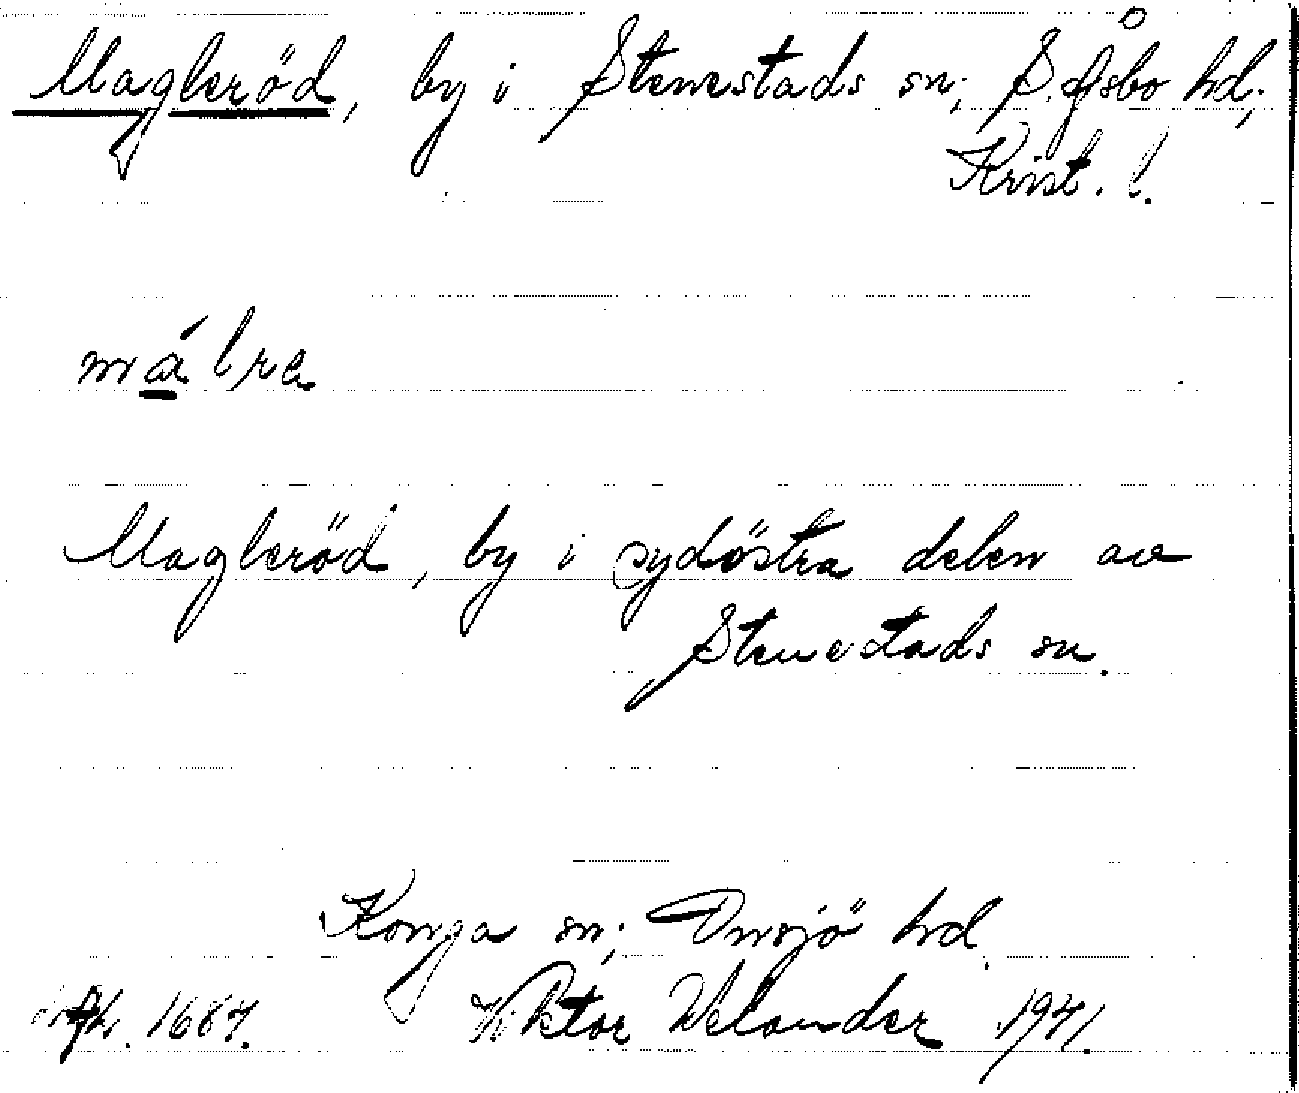 Magleröd, by i Stenestads sn; S. Åsbo hd;
Krist. l.
málre
Magleröd, by i sydöstra delen av
Stenestads sn.
Konga sn; Onsjö hd.
1687. Viktor Welander 1941.